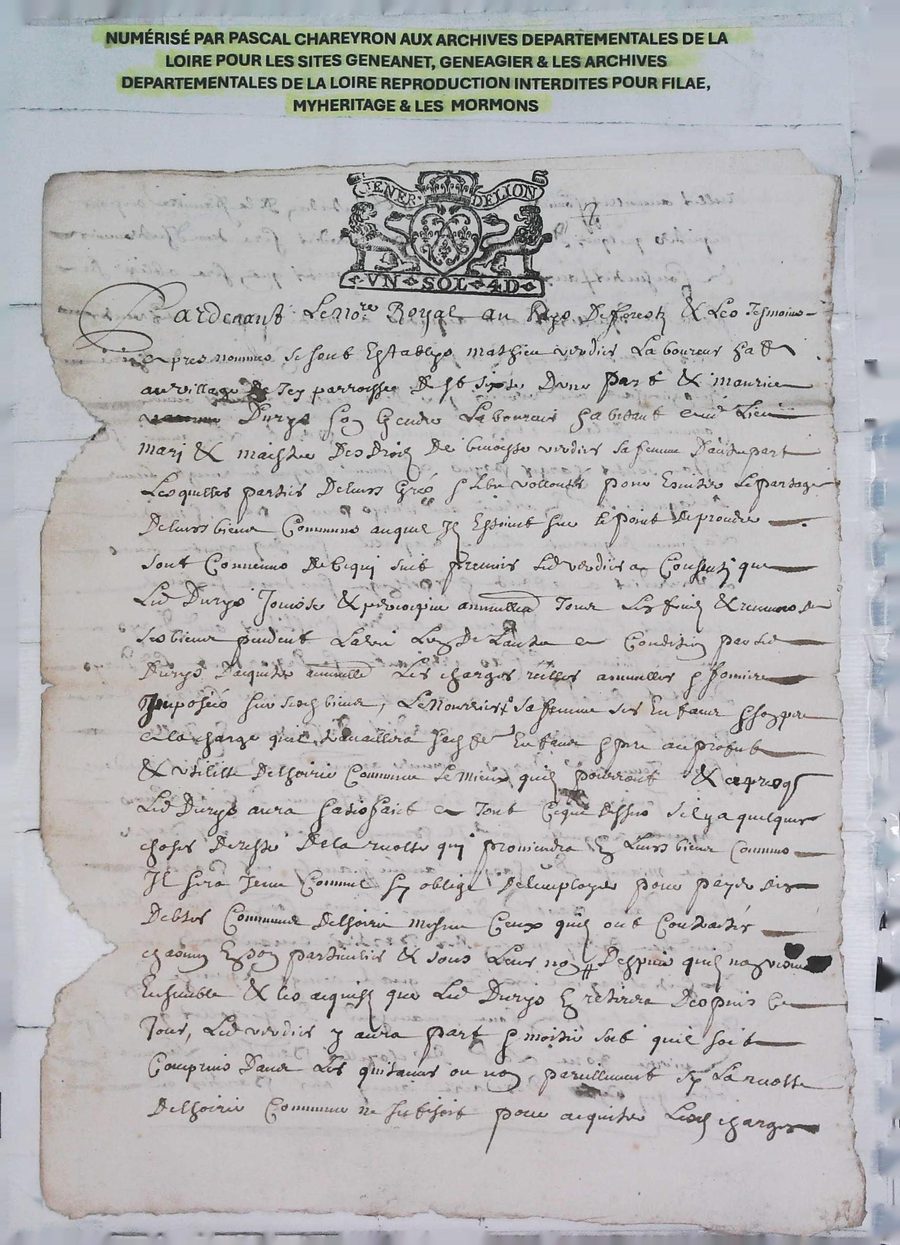 NUMÉRISÉ PAR PASCAL CHAREYRON AUX ARCHIVES DEPARTEMENTALES DE LA
LOIRE POUR LES SITES GENEANET, GENEAGIER & LES ARCHIVES
DEPARTEMENTALES DE LA LOIRE REPRODUCTION INTERDITES POUR FILAE,
MYHERITAGE & LES MORMONS
GENER· DELION
VN SOL 4D
Pardevant Le no.re Royal au pays De forestz & Les Tesmoins
apres nommes se sont Establys mathieu verdier Laboureur
au village de parroisse De st sixte Dune Part & maurice
Durys son gendre Laboureur habitant aud Lieu
mari & maistre Des Droitz De benoiste verdier sa femme Dautre part
Lesquelles parties De leurs grés & Libre vollonté pour Esviter Le partage
De leurs biens Communs auquel Ils Estoint sur le point de proceder
sont Convenus De ce qui suit premier Led verdier a Consenty que
Led Durys Jouisse & annuellem Tous Les fruitz & revenus de
ses biens pendent La vie Lun De Lautre a Condition par led
Durys Daquiter annuellem Les charges reelles annuelles & fonciere
Imposées sur sesd biens, De Nourrir sa femme ses Enfans & son pere
a la charge quil travaillera Enfans & pere au profit
& utilité De lhoirie Commune Le mieux quilz pourront & apres que
Led Durys aura satisfait a Tout Ce que Dessus sil y a quelques
choses De reste De la recolte qui proviendra En Leurs biens Communs
Il sera Tenu Comme sy oblige De lemployer pour payer Les
Debtes Communes De lhoirie mesme Ceux quilz ont Contractés
chacun En son particulier & sous Leurs nom Despuis quilz
Ensemble & les acquis que Led Durys En retirera Despuis Ce
Jour, Led verdier y aura part & moitié soit quil soit
Comprins Dans Les quitances ou non, pareillement sy La recolte
De lhoirie Commune ne sufisoit pour acquiter Lesd charges